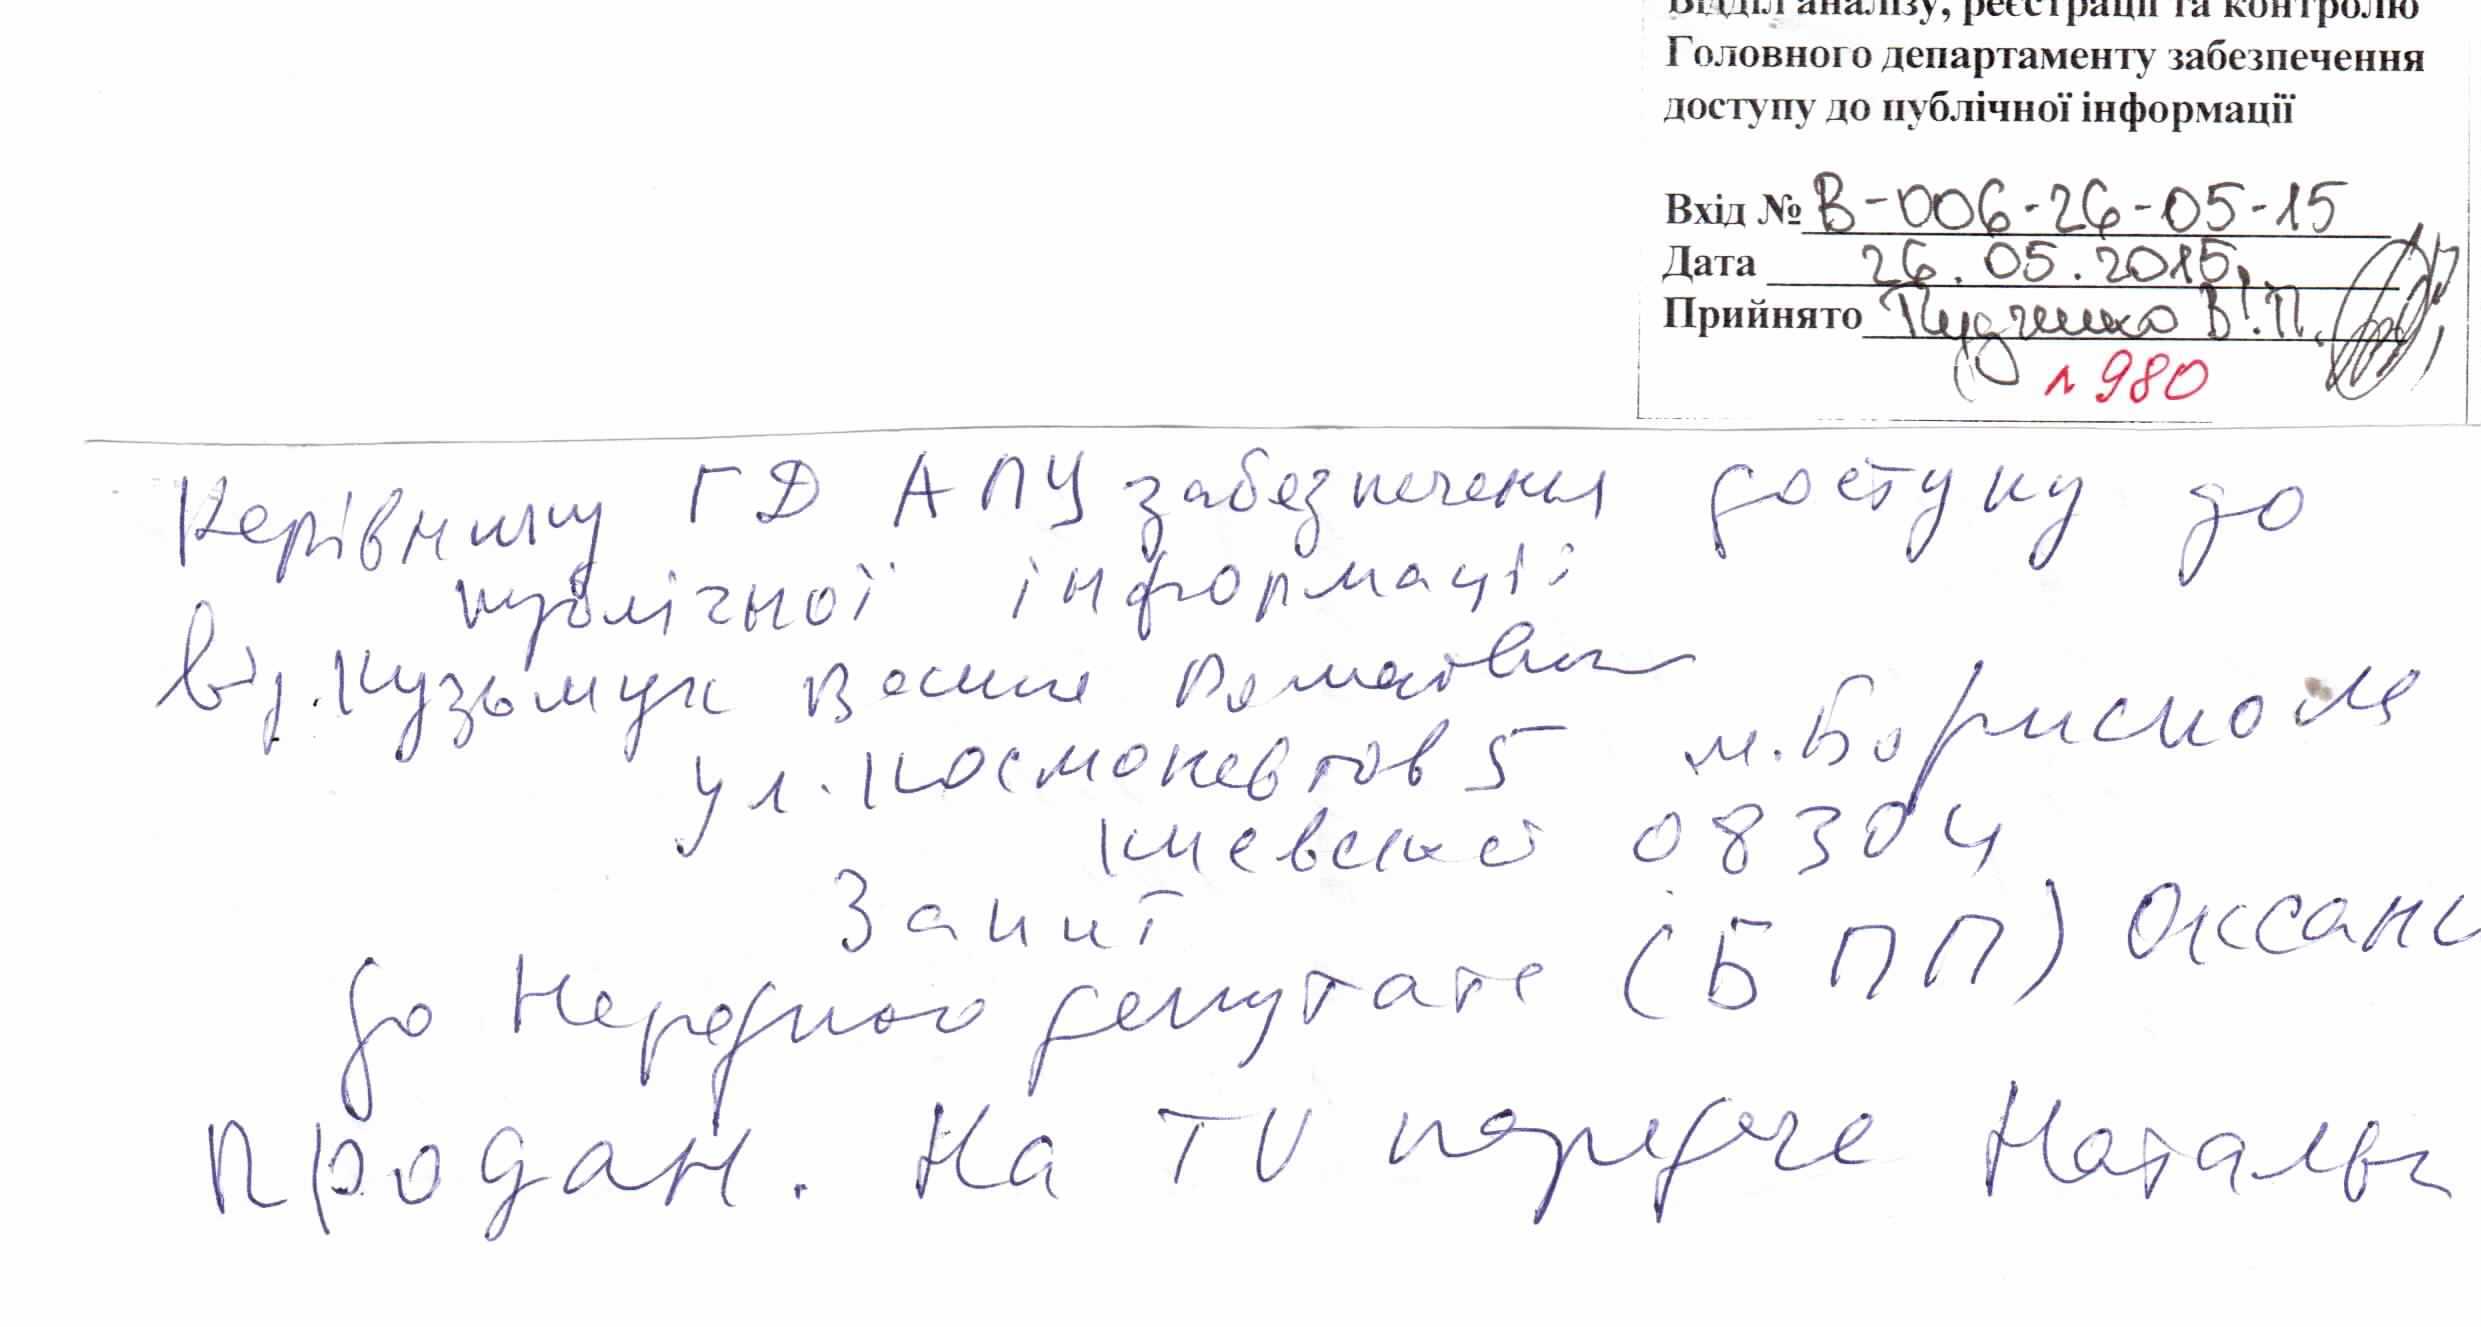 Відділ аналізу, реєстрації та контролю
Головного департаменту забезпечення
доступу до публічної інформації
Вхід № В-006-26-05-15
Дата 26.05.2015
Прийнято В.П.
980
Керівнику ГД АПУ забезпечення доступу до
публічної інформації
від. Кузьмук
ул. Космонавтов 5 м. Борисполя
Киевской 08304
Запит
до Народного депутата (БПП) Оксани
Продан. На TV передаче Натальи